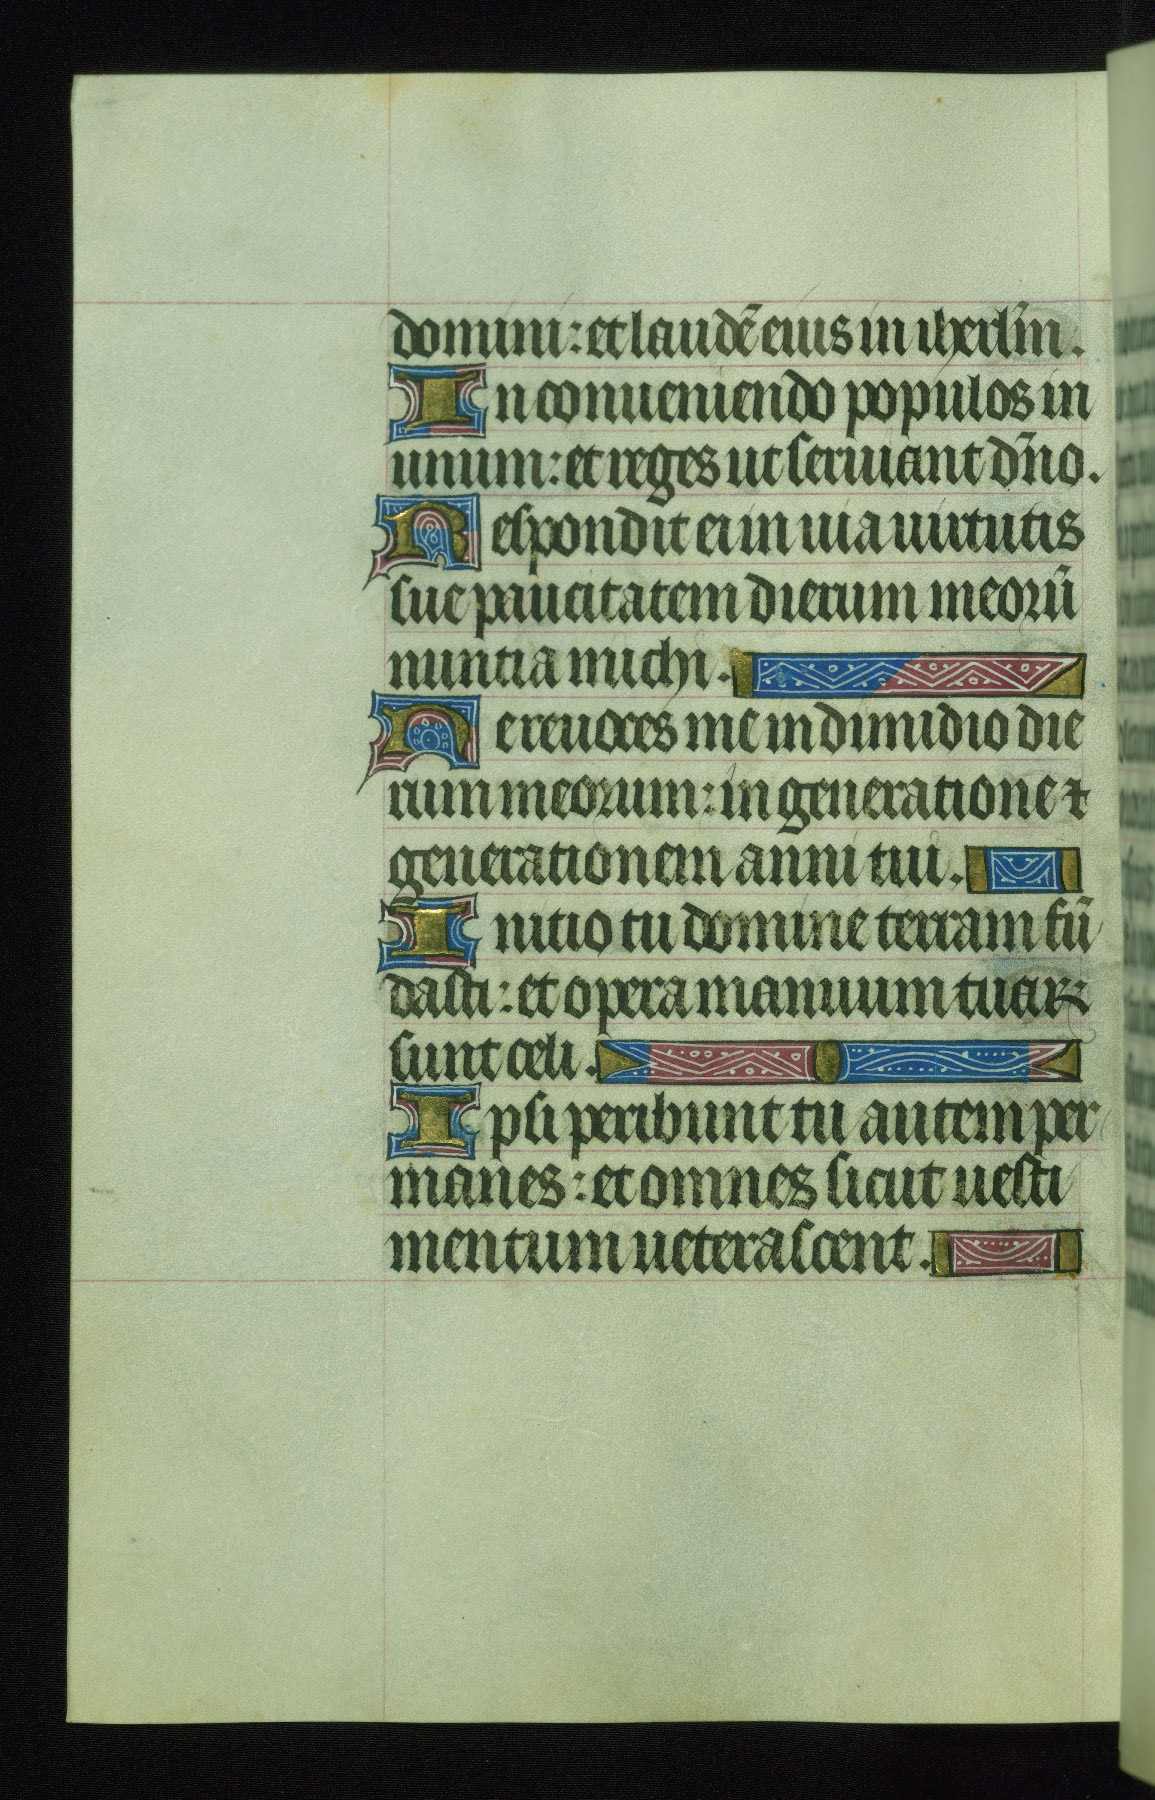 domini: et laudē eius in iherl̄m.
In conueniendo populos in
unum: et reges ut seruiant dn̄o.
Respondit ei in uia uirtutis
sue paucitatem dierum meorū
nuntia michi.
Ne reuoces me in dimidio die
rum meorum: in generatione ⁊
generationem anni tui.
Initio tu domine terram fū
dasti: et opera manuum tuaꝝ
sunt celi.
Ipsi peribunt tu autem per
manes: et omnes sicut uesti
mentum ueterascent.